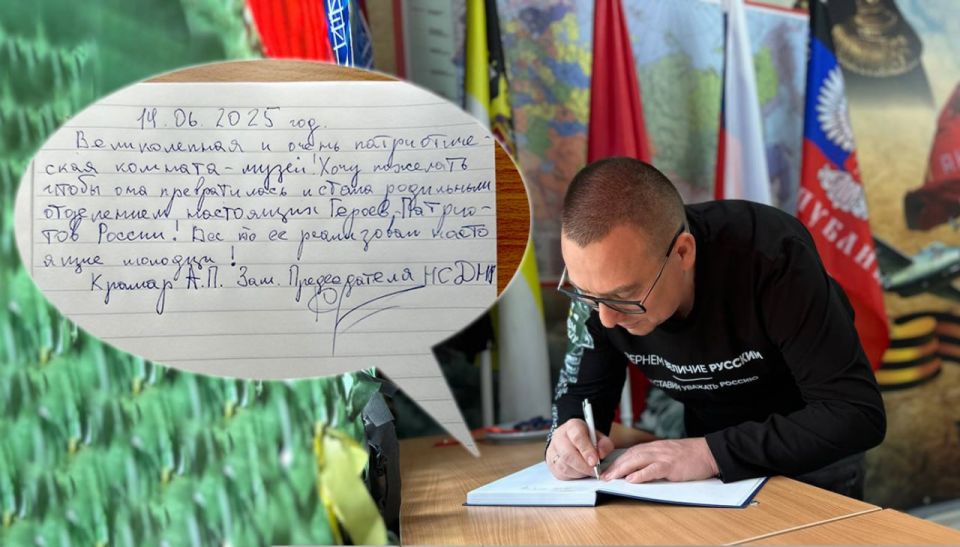 14.06.2025 год.
Великолепная и очень патриотиче-
ская комната-музей! Хочу пожелать
чтобы она превратилась и стала родильным
отделением настоящих Героев, Патрио-
тов России! Все кто ее реализовал насто
ящие молодцы!
Крамар А.П. Зам. Председателя НСДНР
ВЕРНЕМ ВЕЛИЧИЕ РУССКИМ
ЗАСТАВИМ УВАЖАТЬ РОССИЮ